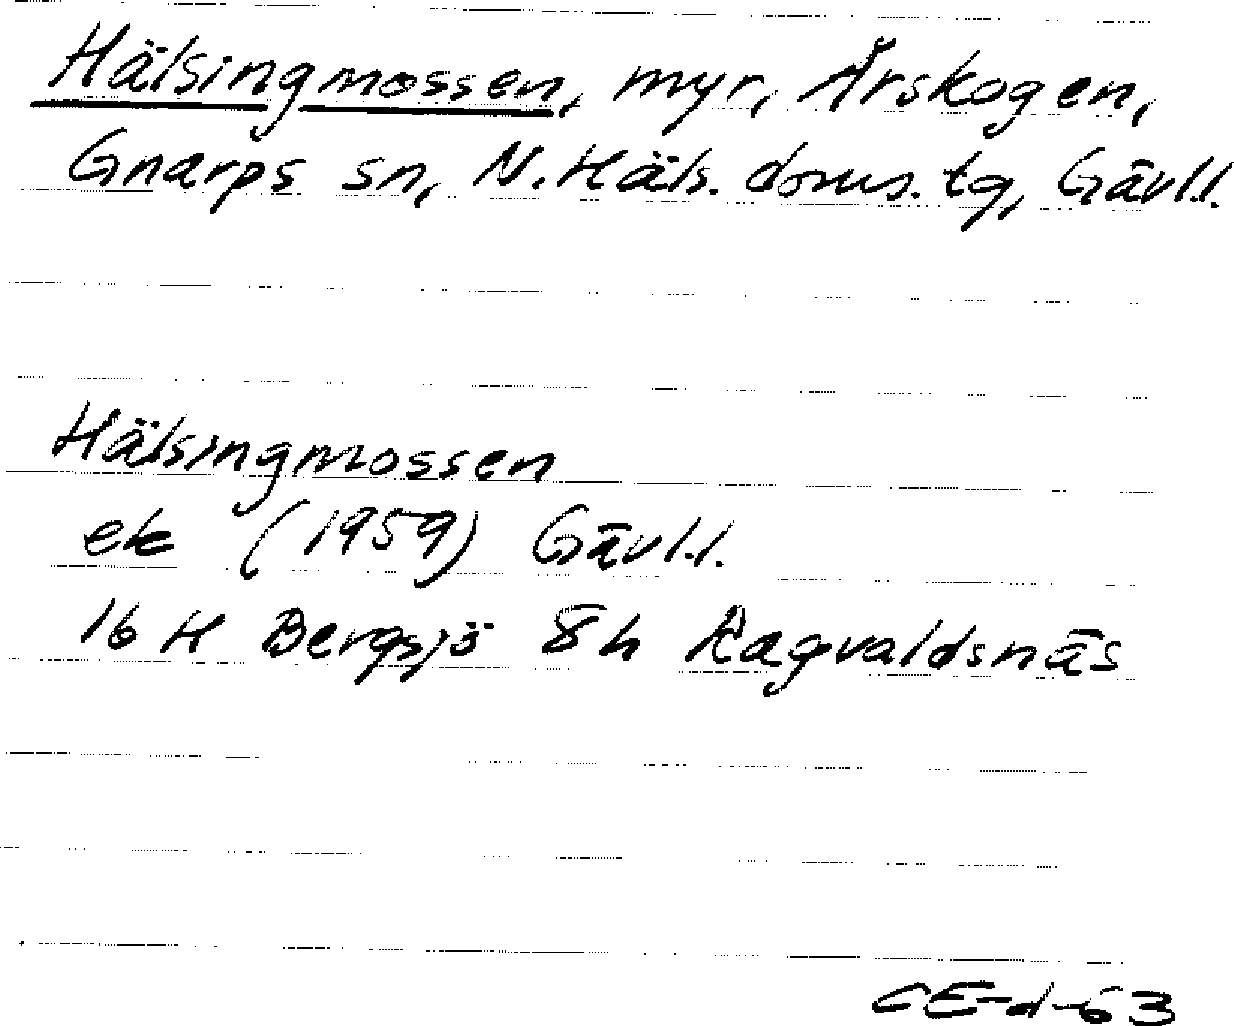 Hälsingmossen, myr, Årskogen,
Gnarps sn, N. Häls. doms. tg, Gävl.l.
Hälsingmossen
ek (1959) Gävl.l.
16 H Bergsjö 8h Ragvaldsnäs
CE-d-63